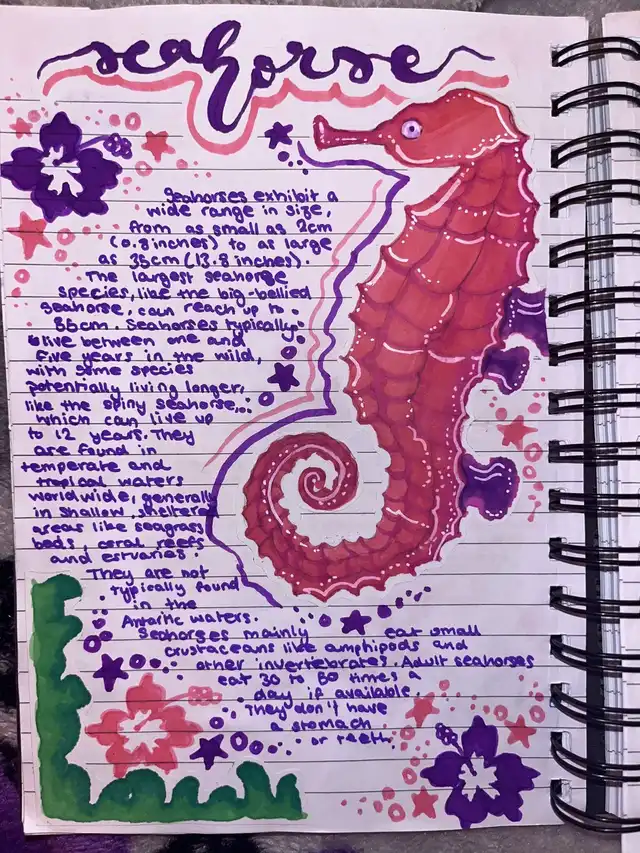 seahorse
Seahorses exhibit a
wide range in size,
from as small as 2cm
(0.8 inches) to as large
as 35cm (13.8 inches).
The largest seahorse
species, like the big-bellied
seahorse, can reach up to
35cm. Seahorses typically
live between one and
five years in the wild,
with some species
potentially living longer,
like the spiny seahorse,
which can live up
to 12 years. They
are found in
temperate and
tropical waters
worldwide, generally
in shallow, sheltered
areas like seagrass
beds, coral reefs
and estuaries.
They are not
typically found
in the
Antartic waters.
Seahorses mainly eat small
crustaceans like amphipods and
other invertebrates. Adult seahorses
eat 30 to 50 times a
day if available.
They don't have
a stomach
or teeth.